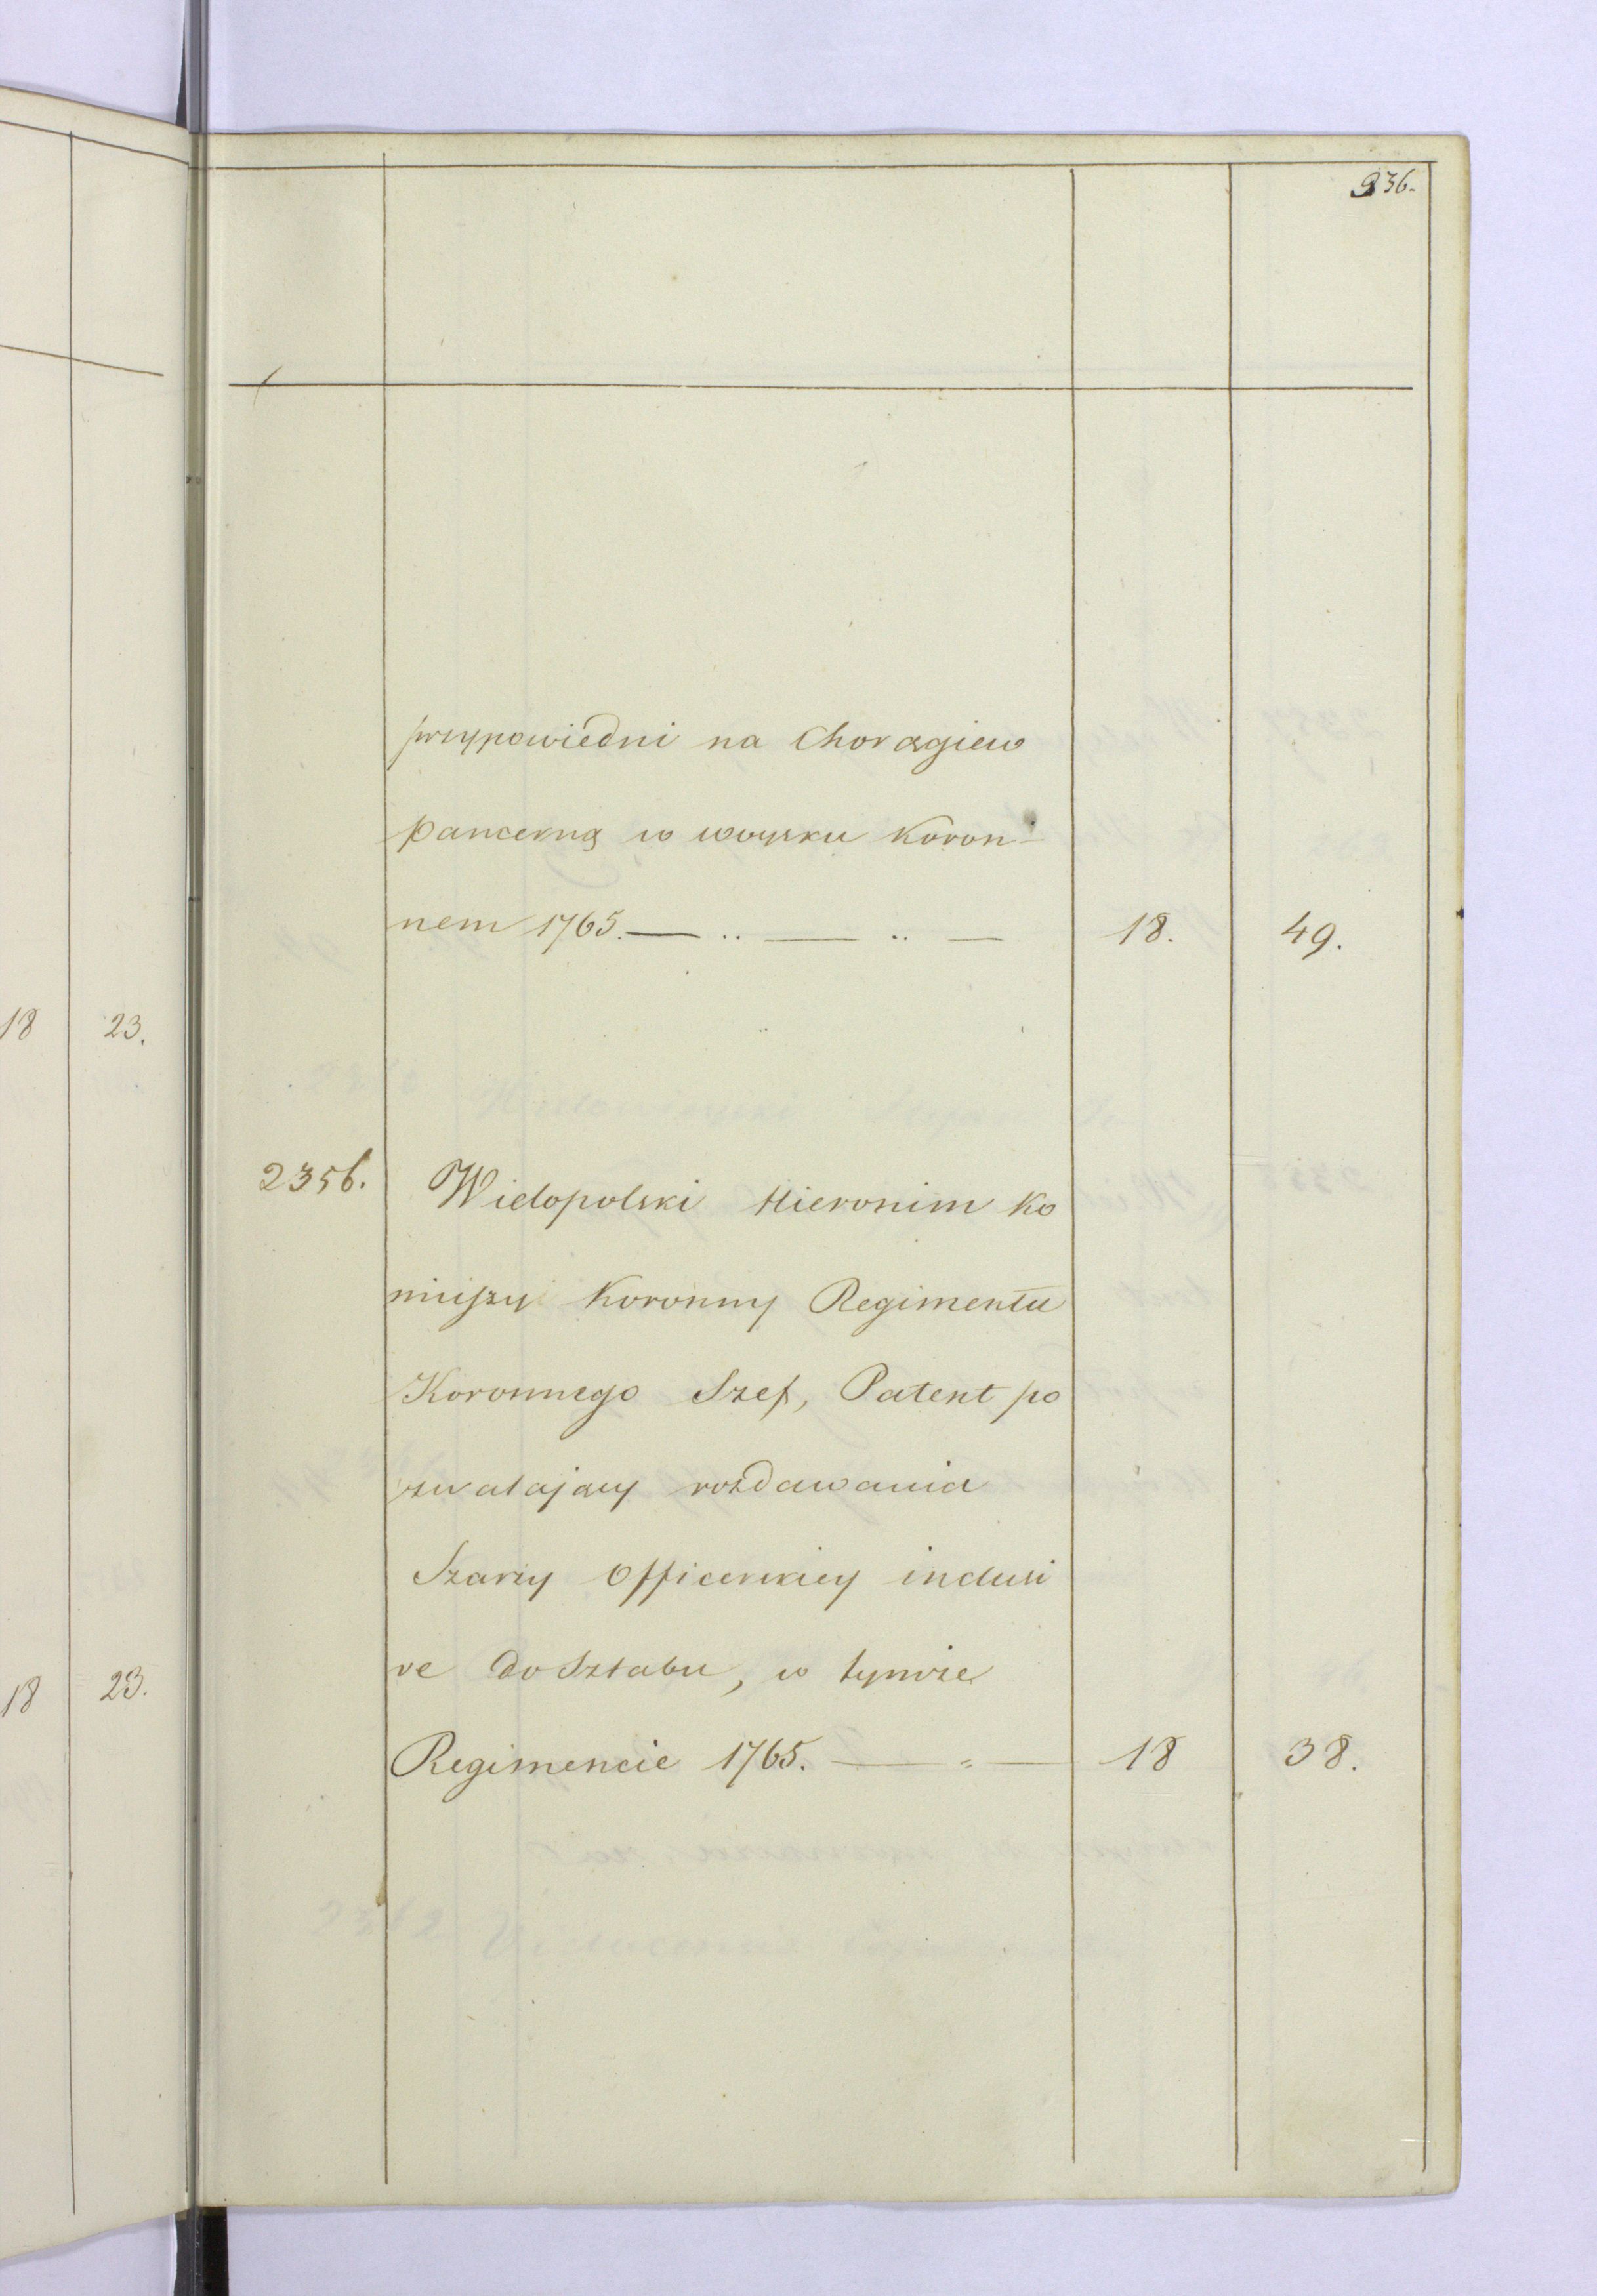 936.
przypowiedni na Chorągiew
Pancerną w woysku Koron-
nem 1765. — .. — .. — 18. 49.
18 23.
2356. Wielopolski Hieronim Ko
niuszy Koronny Regimentu
Koronnego Szef, Patent po
zwalający rozdawania
Szarży Officerskiey inclusi
ve do Sztabu, w tymże
18 23.
Regimencie 1765. — " — 18 38.